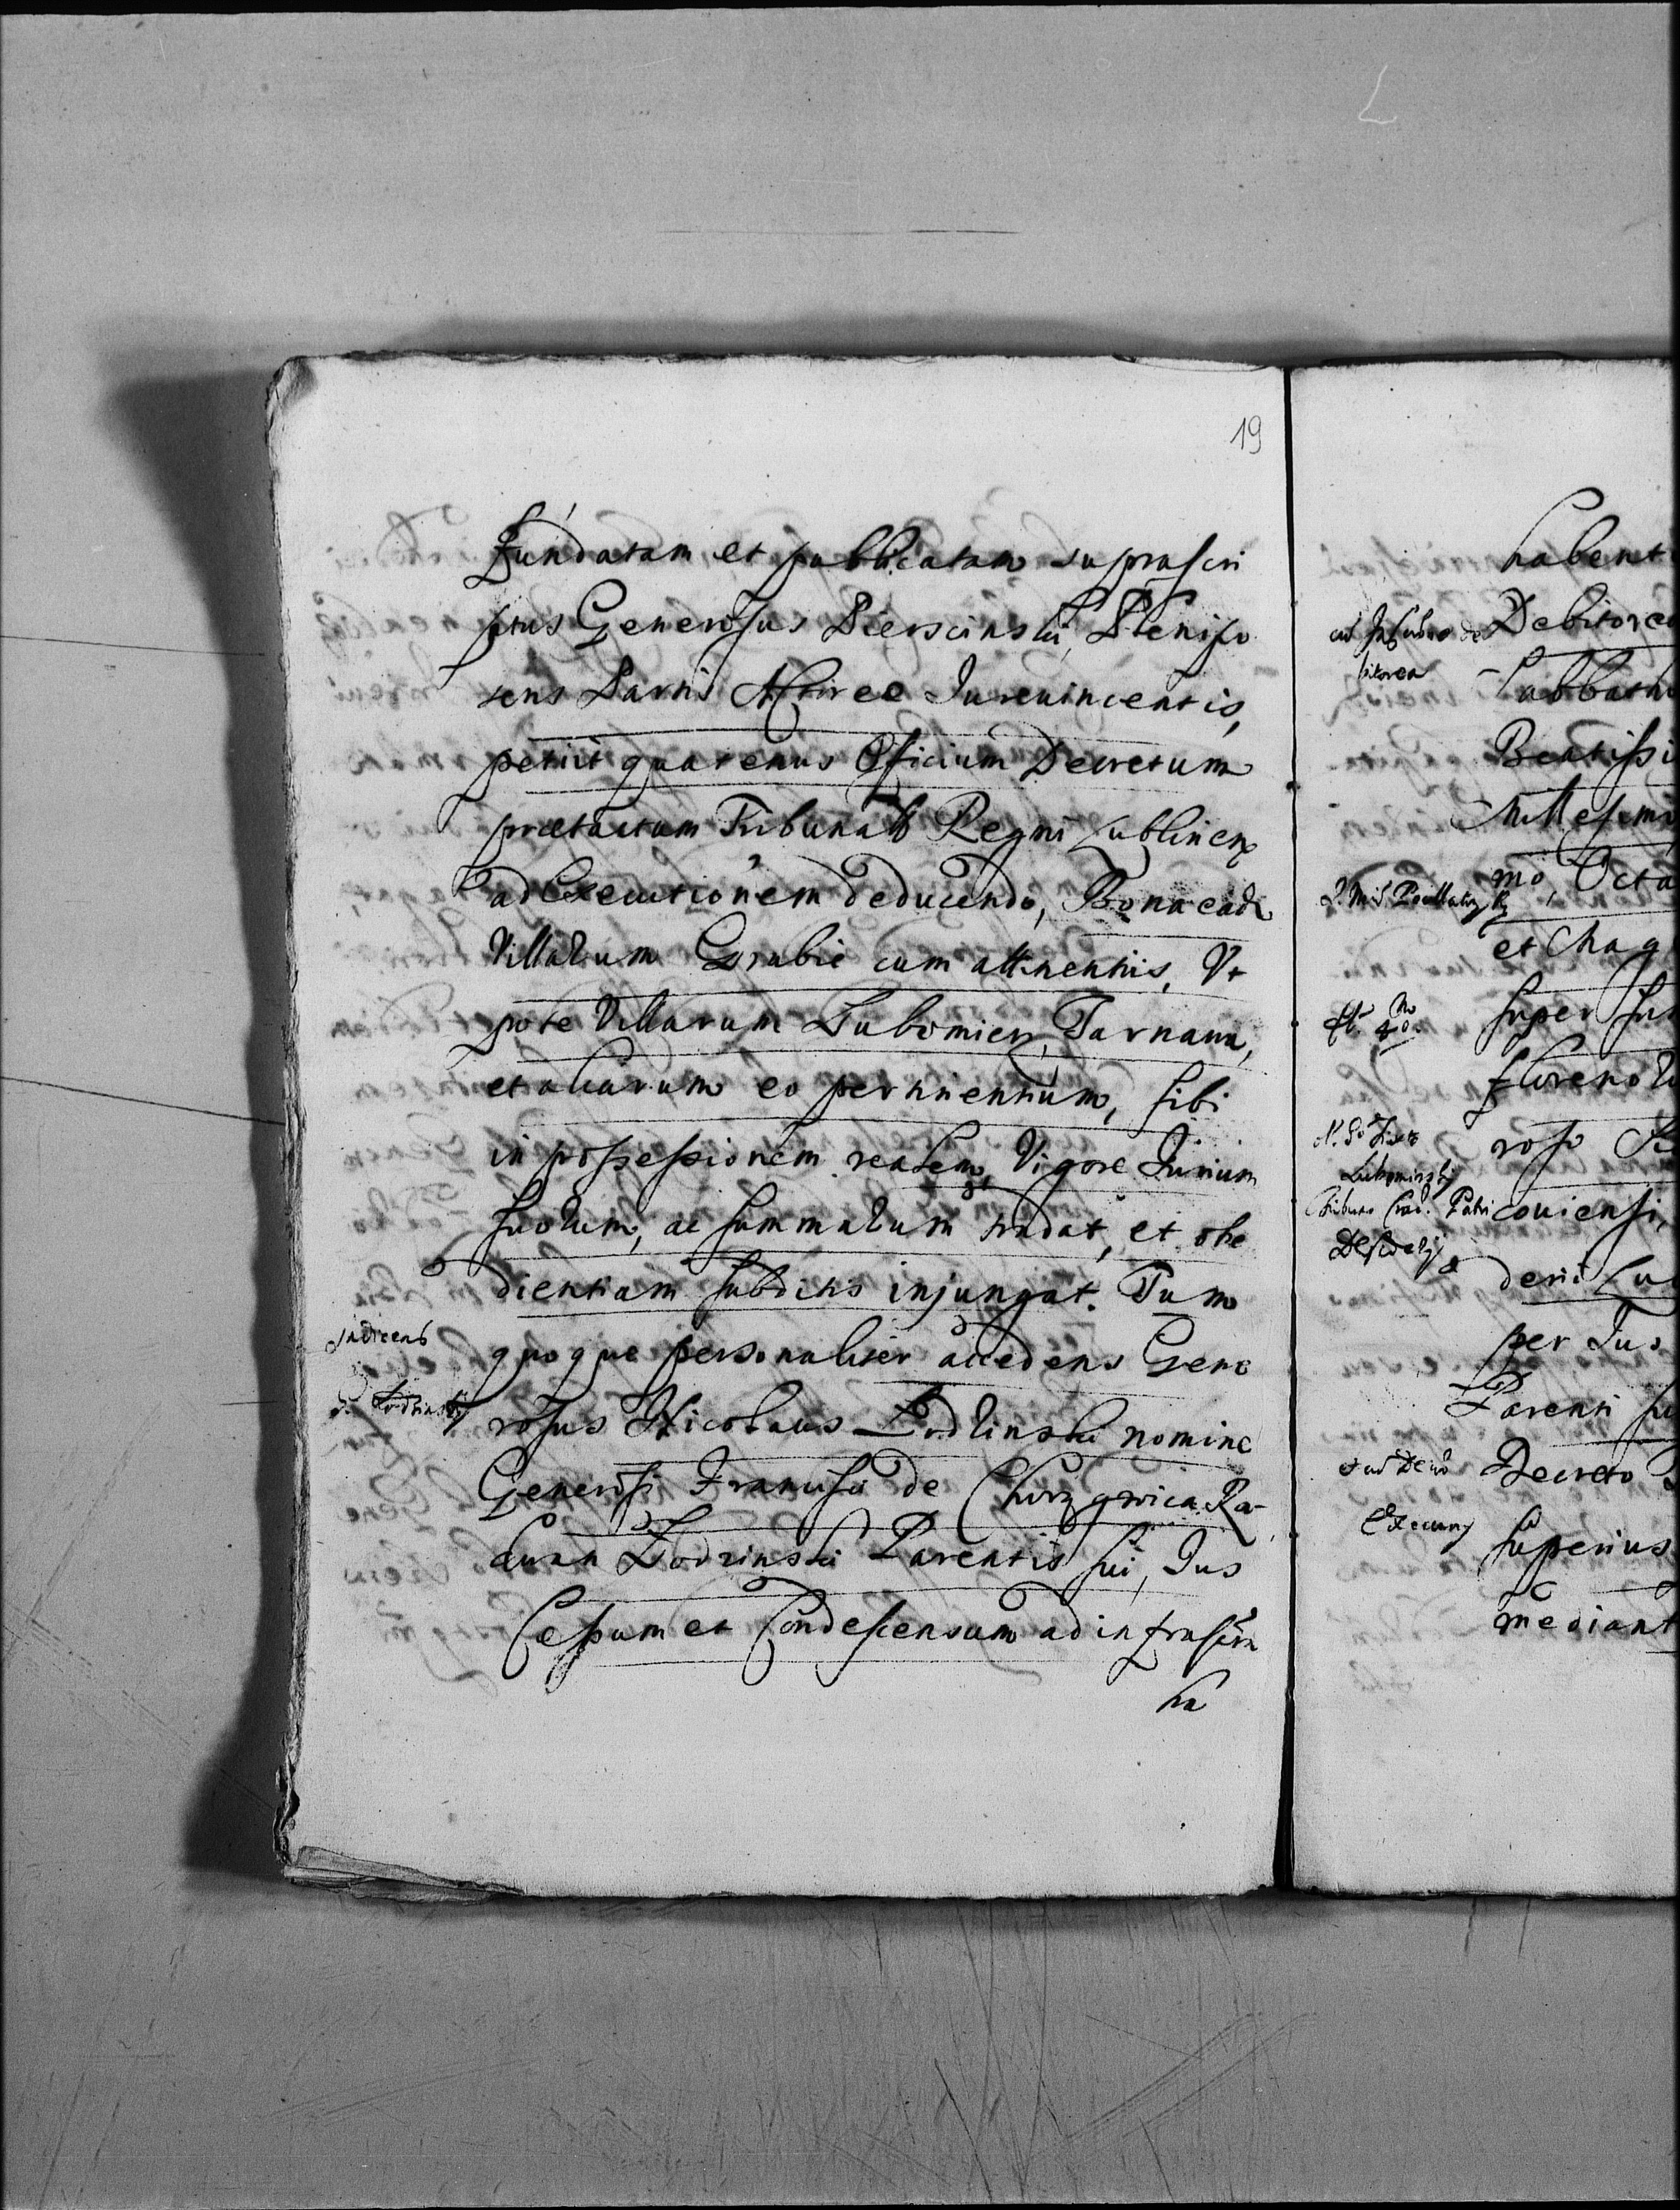 19
Fundatam et publicatam suprascri
ptus Generosus Pierscinski, Plenipo
tens Partis Actoreae Jurevincentis,
petiit quatenus Officium Decretum
praetactum Tribunalis Regni Lublinen
ad Executionem deducendo, Bona ead
Villarum Grabie cum attinentiis, Vt
pote Villarum Lubomierz, Tarnawa,
et aliarum eo pertinentium, sibi
in possessionem realem, Vigore Jurium
suorum, ac summarum tradat, et obe
dientiam subditis injungat. Tum
quoque personaliter accedens Gene
rosus Nicolaus Lodzinski nomine
Generosi Francisci de
Lodzinski Parentis sui, Jus
Cessum et Condescensum ad infrascri
Lodzinski
habent
Debitores
Sabbatho
Beatissi
Millesimo
mo, Octa
et Mag
super
florenor
roso
coviensi,
derii Lu
per Jus
Parenti su
Decreto
superius
mediant
Lubomirski
Desiderij